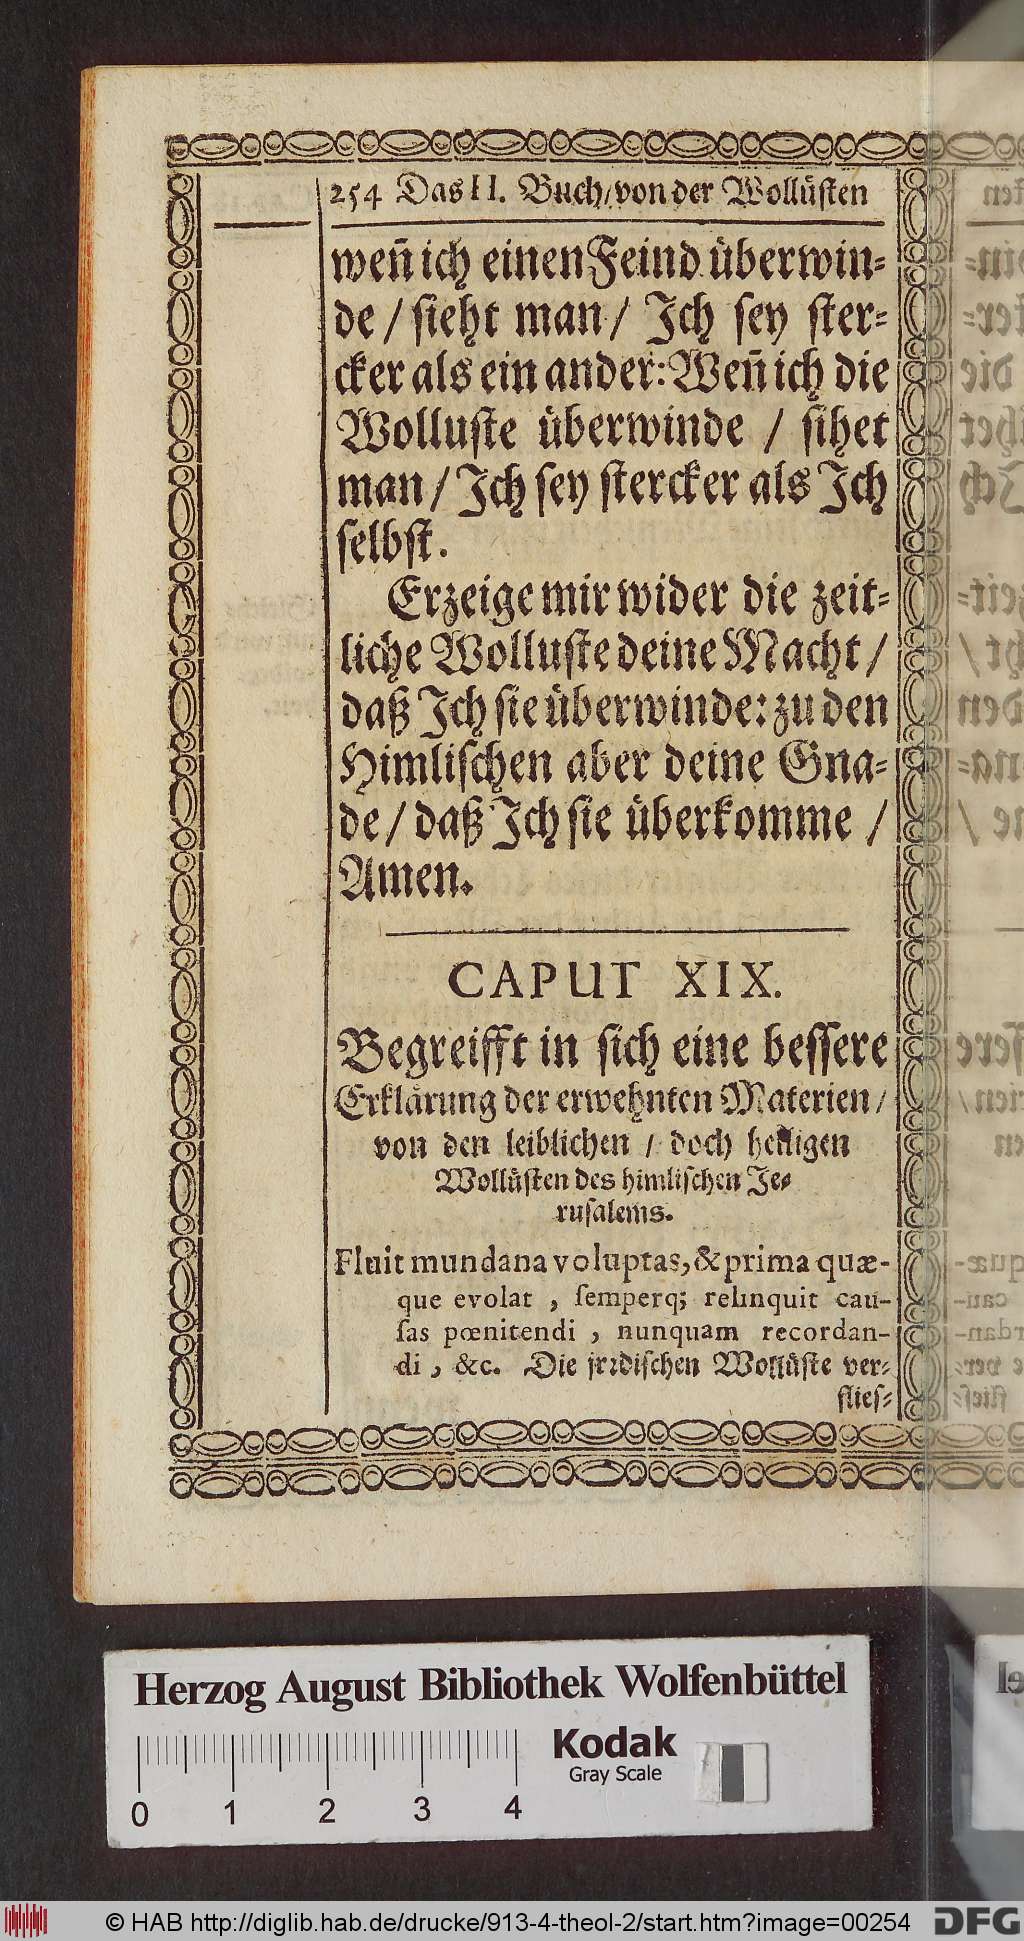 254 Das II. Buch/von der Wollüsten
weñ ich einen Feind überwin⸗
de / sieht man / Ich sey ster⸗
cker als ein ander: Weñ ich die
Wolluste überwinde / sihet
man / Ich sey stercker als Ich
selbst.
Erzeige mir wider die zeit⸗
liche Wolluste deine Macht /
daß Ich sie überwinde: zu den
Himlischen aber deine Gna⸗
de / daß Ich sie überkomme /
Amen.
CAPUT XIX.
Begreifft in sich eine bessere
Erklärung der erwehnten Materien /
von den leiblichen / doch heiligen
Wollüsten des himlischen Je⸗
rusalems.
Fluit mundana voluptas, & prima quæ-
que evolat , ſemperq; relinquit cau-
ſas pœnitendi , nunquam recordan-
di , &c. Die jrrdischen Wollüste ver⸗
flies⸗
Herzog August Bibliothek Wolfenbüttel
Kodak
Gray Scale
0 1 2 3 4
© HAB http://diglib.hab.de/drucke/913-4-theol-2/start.htm?image=00254
DFG